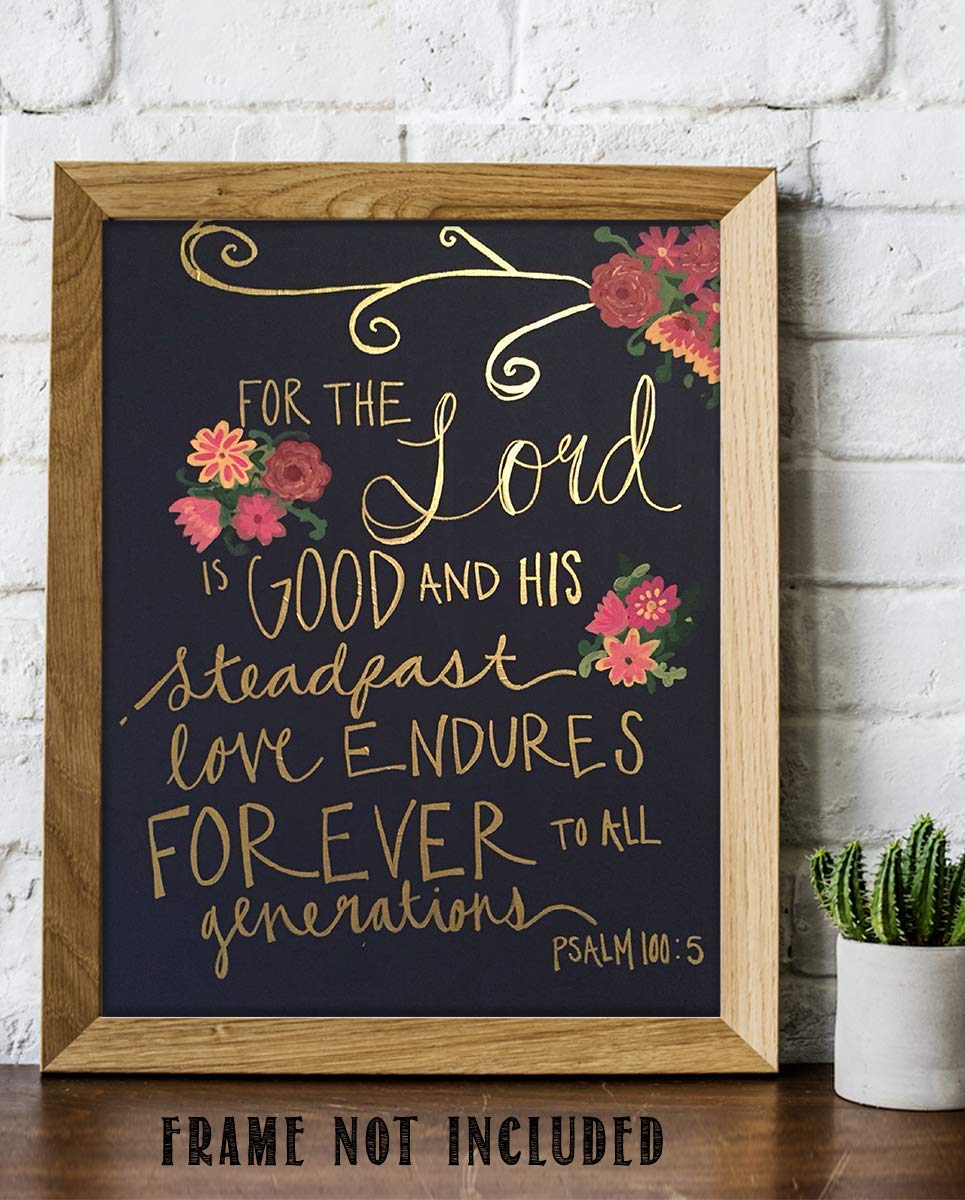 FOR THE Lord
IS GOOD AND HIS
steadfast
love ENDURES
FOREVER TO ALL
generations
PSALM 100:5
FRAME NOT INCLUDED